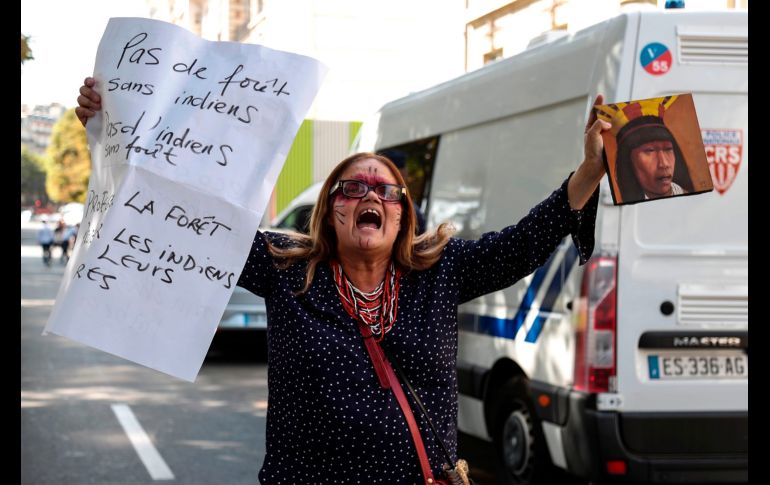 Pas de forêt
sans indiens
Pas d'indiens
sans forêt
LA FORÊT
LES INDIENS
LEURS
RES
V
55
POLICE
NATIONALE
CRS
MASTER
ES-336 AG